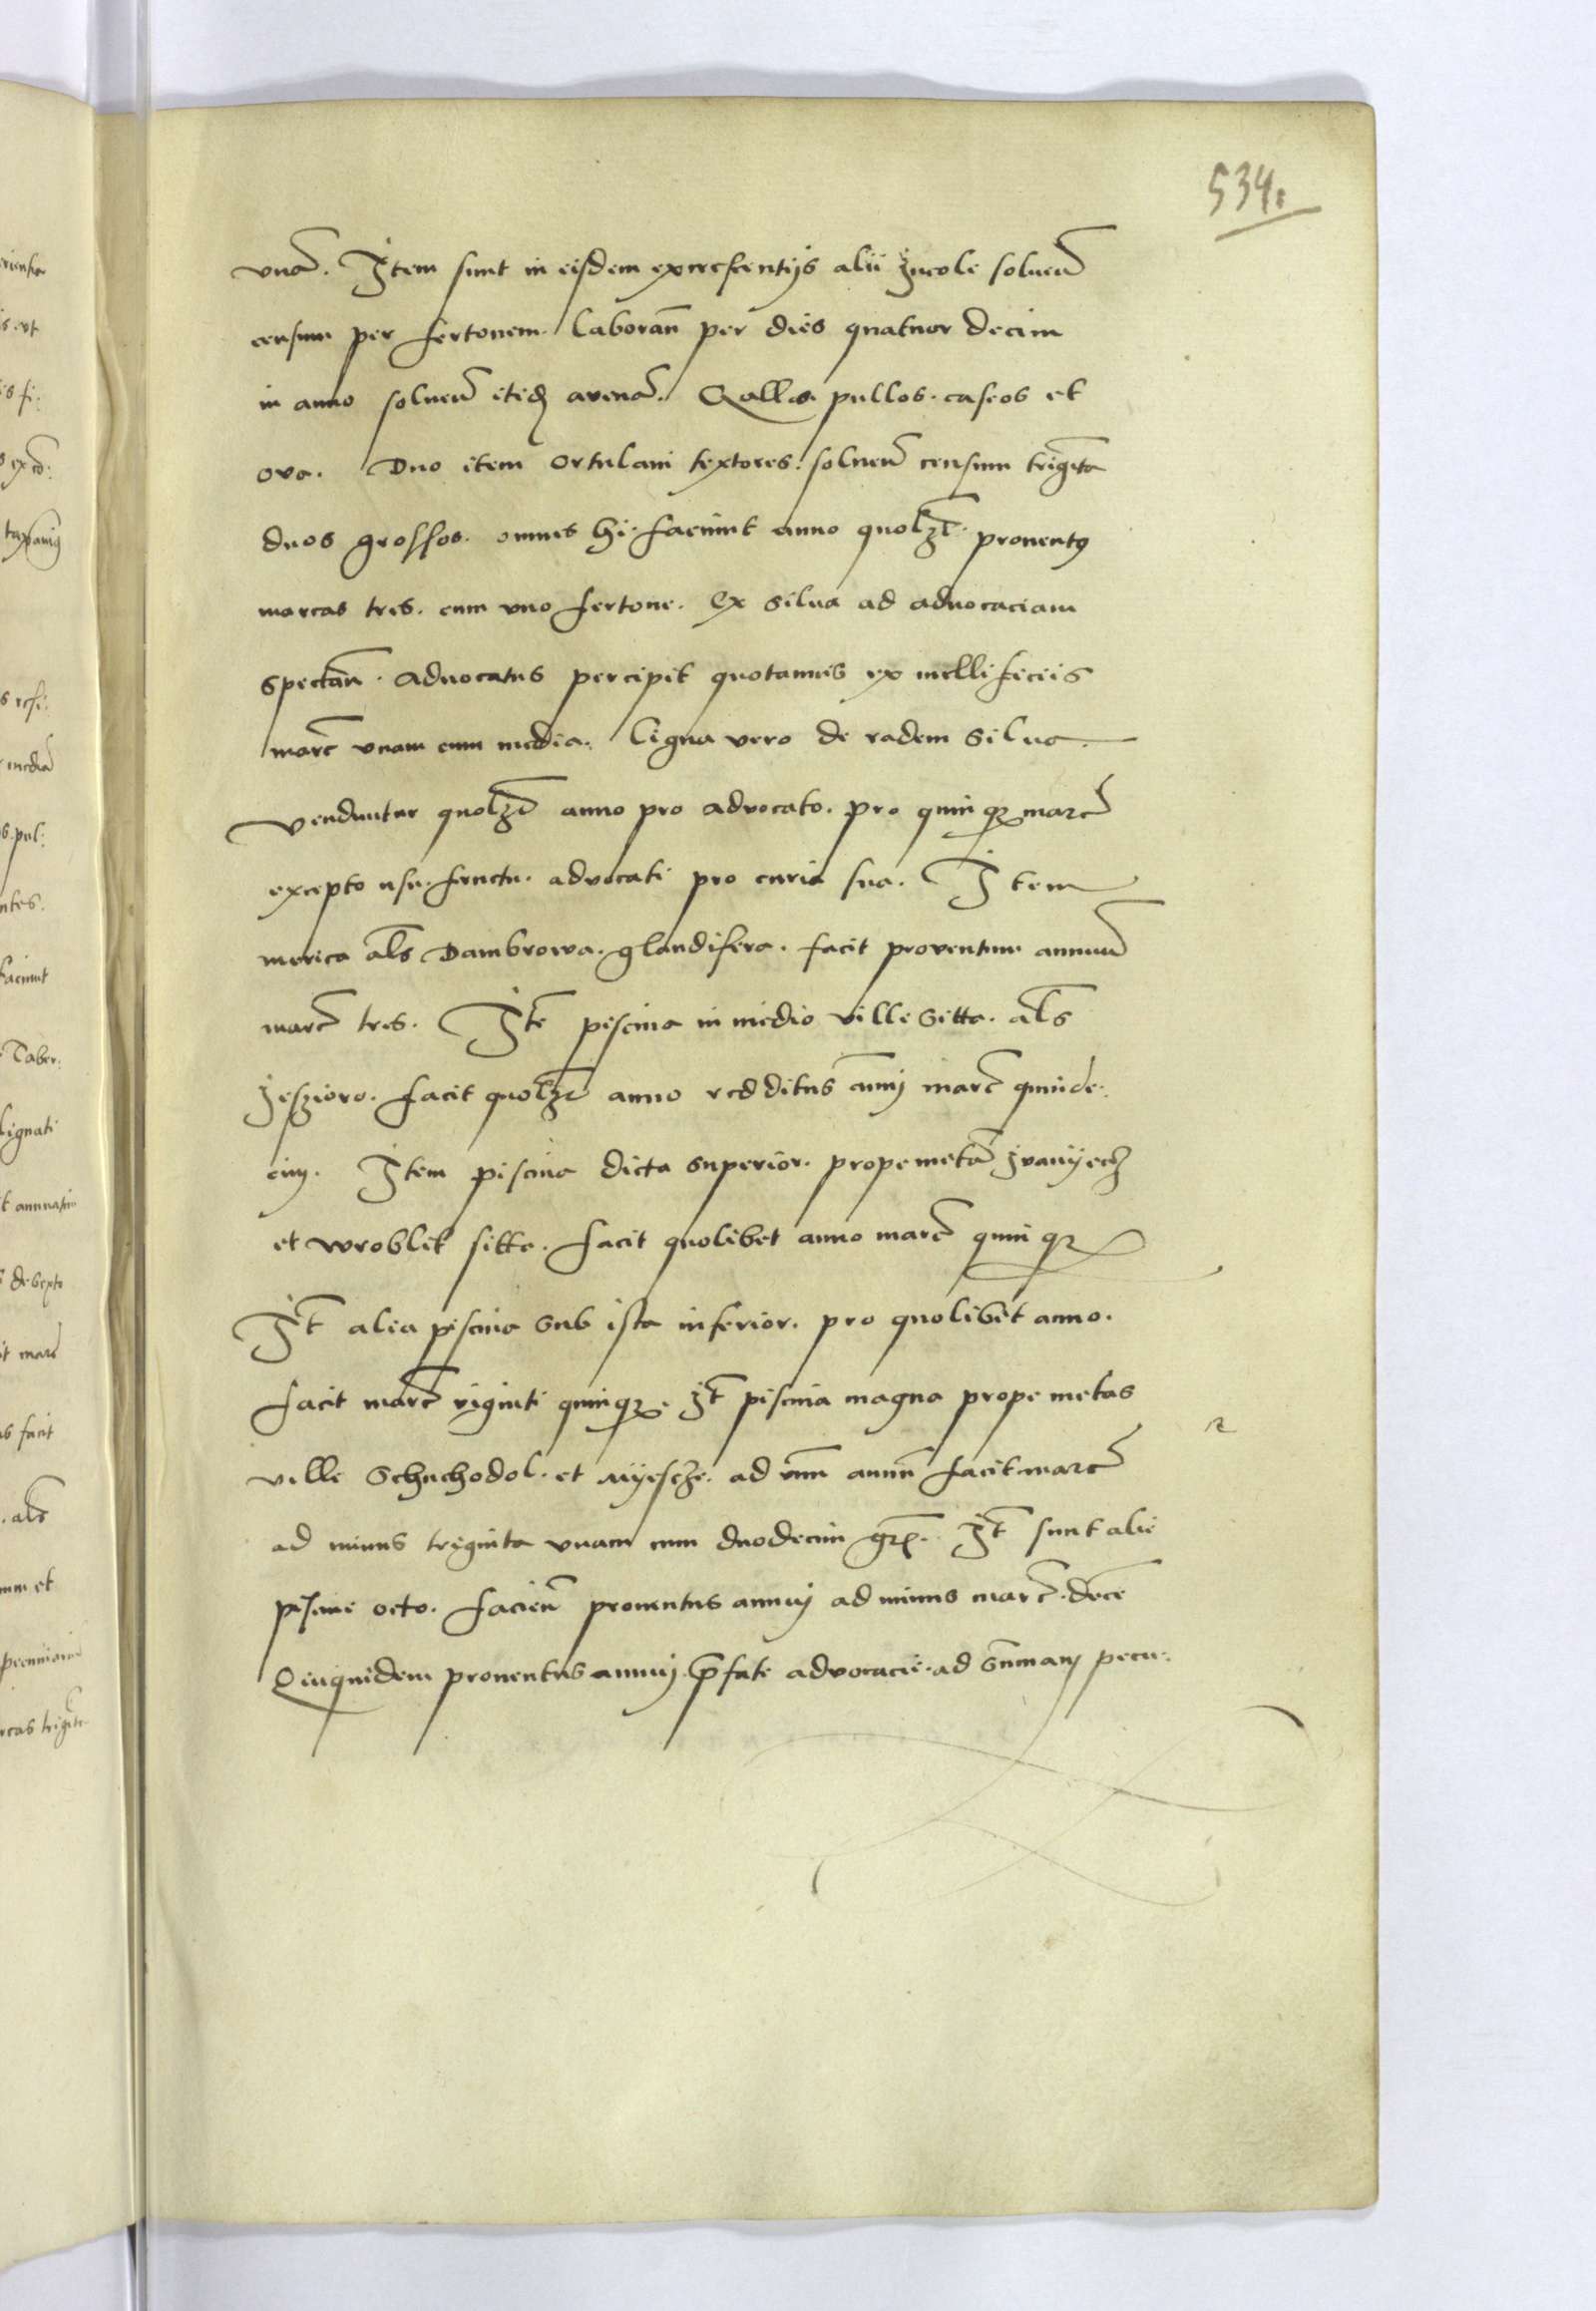 534.
vnā. Item sunt in eisdem excrescentijs alii Incole soluen̄
censum per fertonem. laboran̄ per dies quatuor decim
in anno soluen̄ itidē avenā. Gallos pullos. caseos et
ova. Duo item ortulani textores. soluen̄ censum trigīta
duos grossos. omnes hi faciunt anno quolȝt. prouentꝰ
marcas tres. cum vno fertone. Ex silua ad aduocaciam
spectan̄. aduocatus percipit quotannis ex mellificiis
marc̄ vnam cum media. ligna vero de eadem silua
venduntur quolȝt anno pro advocato. pro quinqȝ marc̄
excepto usu. fructu. advocati pro curia sua. Item
merica al̄s Dambrowa. glandifera. facit proventum annuū
marc̄ tres. Itē piscina in medio ville sitta. al̄s
Jeszioro. facit quolȝt anno redditus annuj marc̄ quinde.
cim. Item piscina dicta superior. prope metā Iwanyecz
et wroblik sitta. facit quolibet anno marc̄ quinqȝ
It̄ alia piscina sub ista inferior. pro quolibet anno.
facit marc̄ viginti quinqȝ. It̄ piscina magna prope metas
ville Schuchodol. et Myescze. ad vnū annū facit marc̄
ad minus triginta vnam cum duodecim gr̄. It̄ sunt alie
piscine octo. facien̄ prouentus annuj ad minus marc̄. decē
Quiquidem prouentus annuj. p̄fate advocacie. ad sūmam pecu.